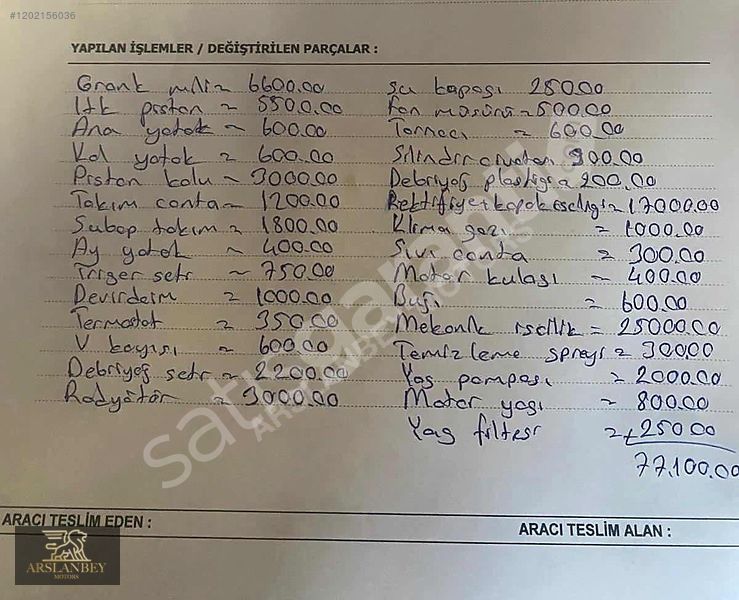 #1202156036
YAPILAN İŞLEMLER / DEĞİŞTİRİLEN PARÇALAR :
Grank mili = 6600.00
Itk piston = 5500.00
Ana yatak = 600.00
Kol yatak = 600.00
Piston kolu = 3000.00
Takım conta = 1200.00
Subop takım = 1800.00
Ay yatak = 400.00
Triger seti = 750.00
Devirdaim = 1000.00
Termostat = 350.00
V kayışı = 600.00
Debriyaj seti = 2200.00
Radyötör = 3000.00
su kapağı 250.00
Fan müşürü = 500.00
Tornacı = 600.00
Silindir civataları 900.00
Debriyaj plastiği = 200.00
Rektifiye + kapak işçiliği = 17000.00
Klima gazı = 1000.00
Sıvı conta = 300.00
Motor kulağı = 400.00
Buji = 600.00
Mekanik işcilik = 25000.00
Temizleme spreyi = 300.00
Yağ pompası = 2000.00
Motor yağı = 800.00
Yağ filtesi = + 250.00
77.100.00
sahibinden.com
ARSLANBEY MOTORS
ARACI TESLİM EDEN :
ARACI TESLİM ALAN :
ARSLANBEY
MOTORS